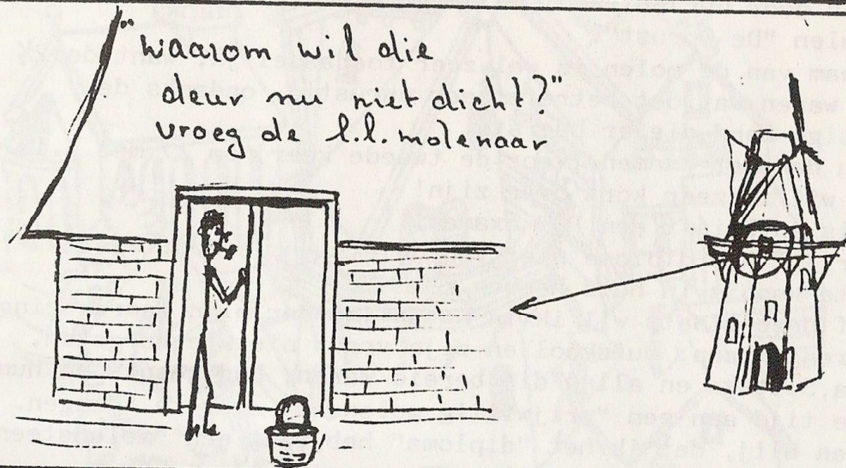 "waarom wil die
deur nu niet dicht?"
vroeg de l.l. molenaar